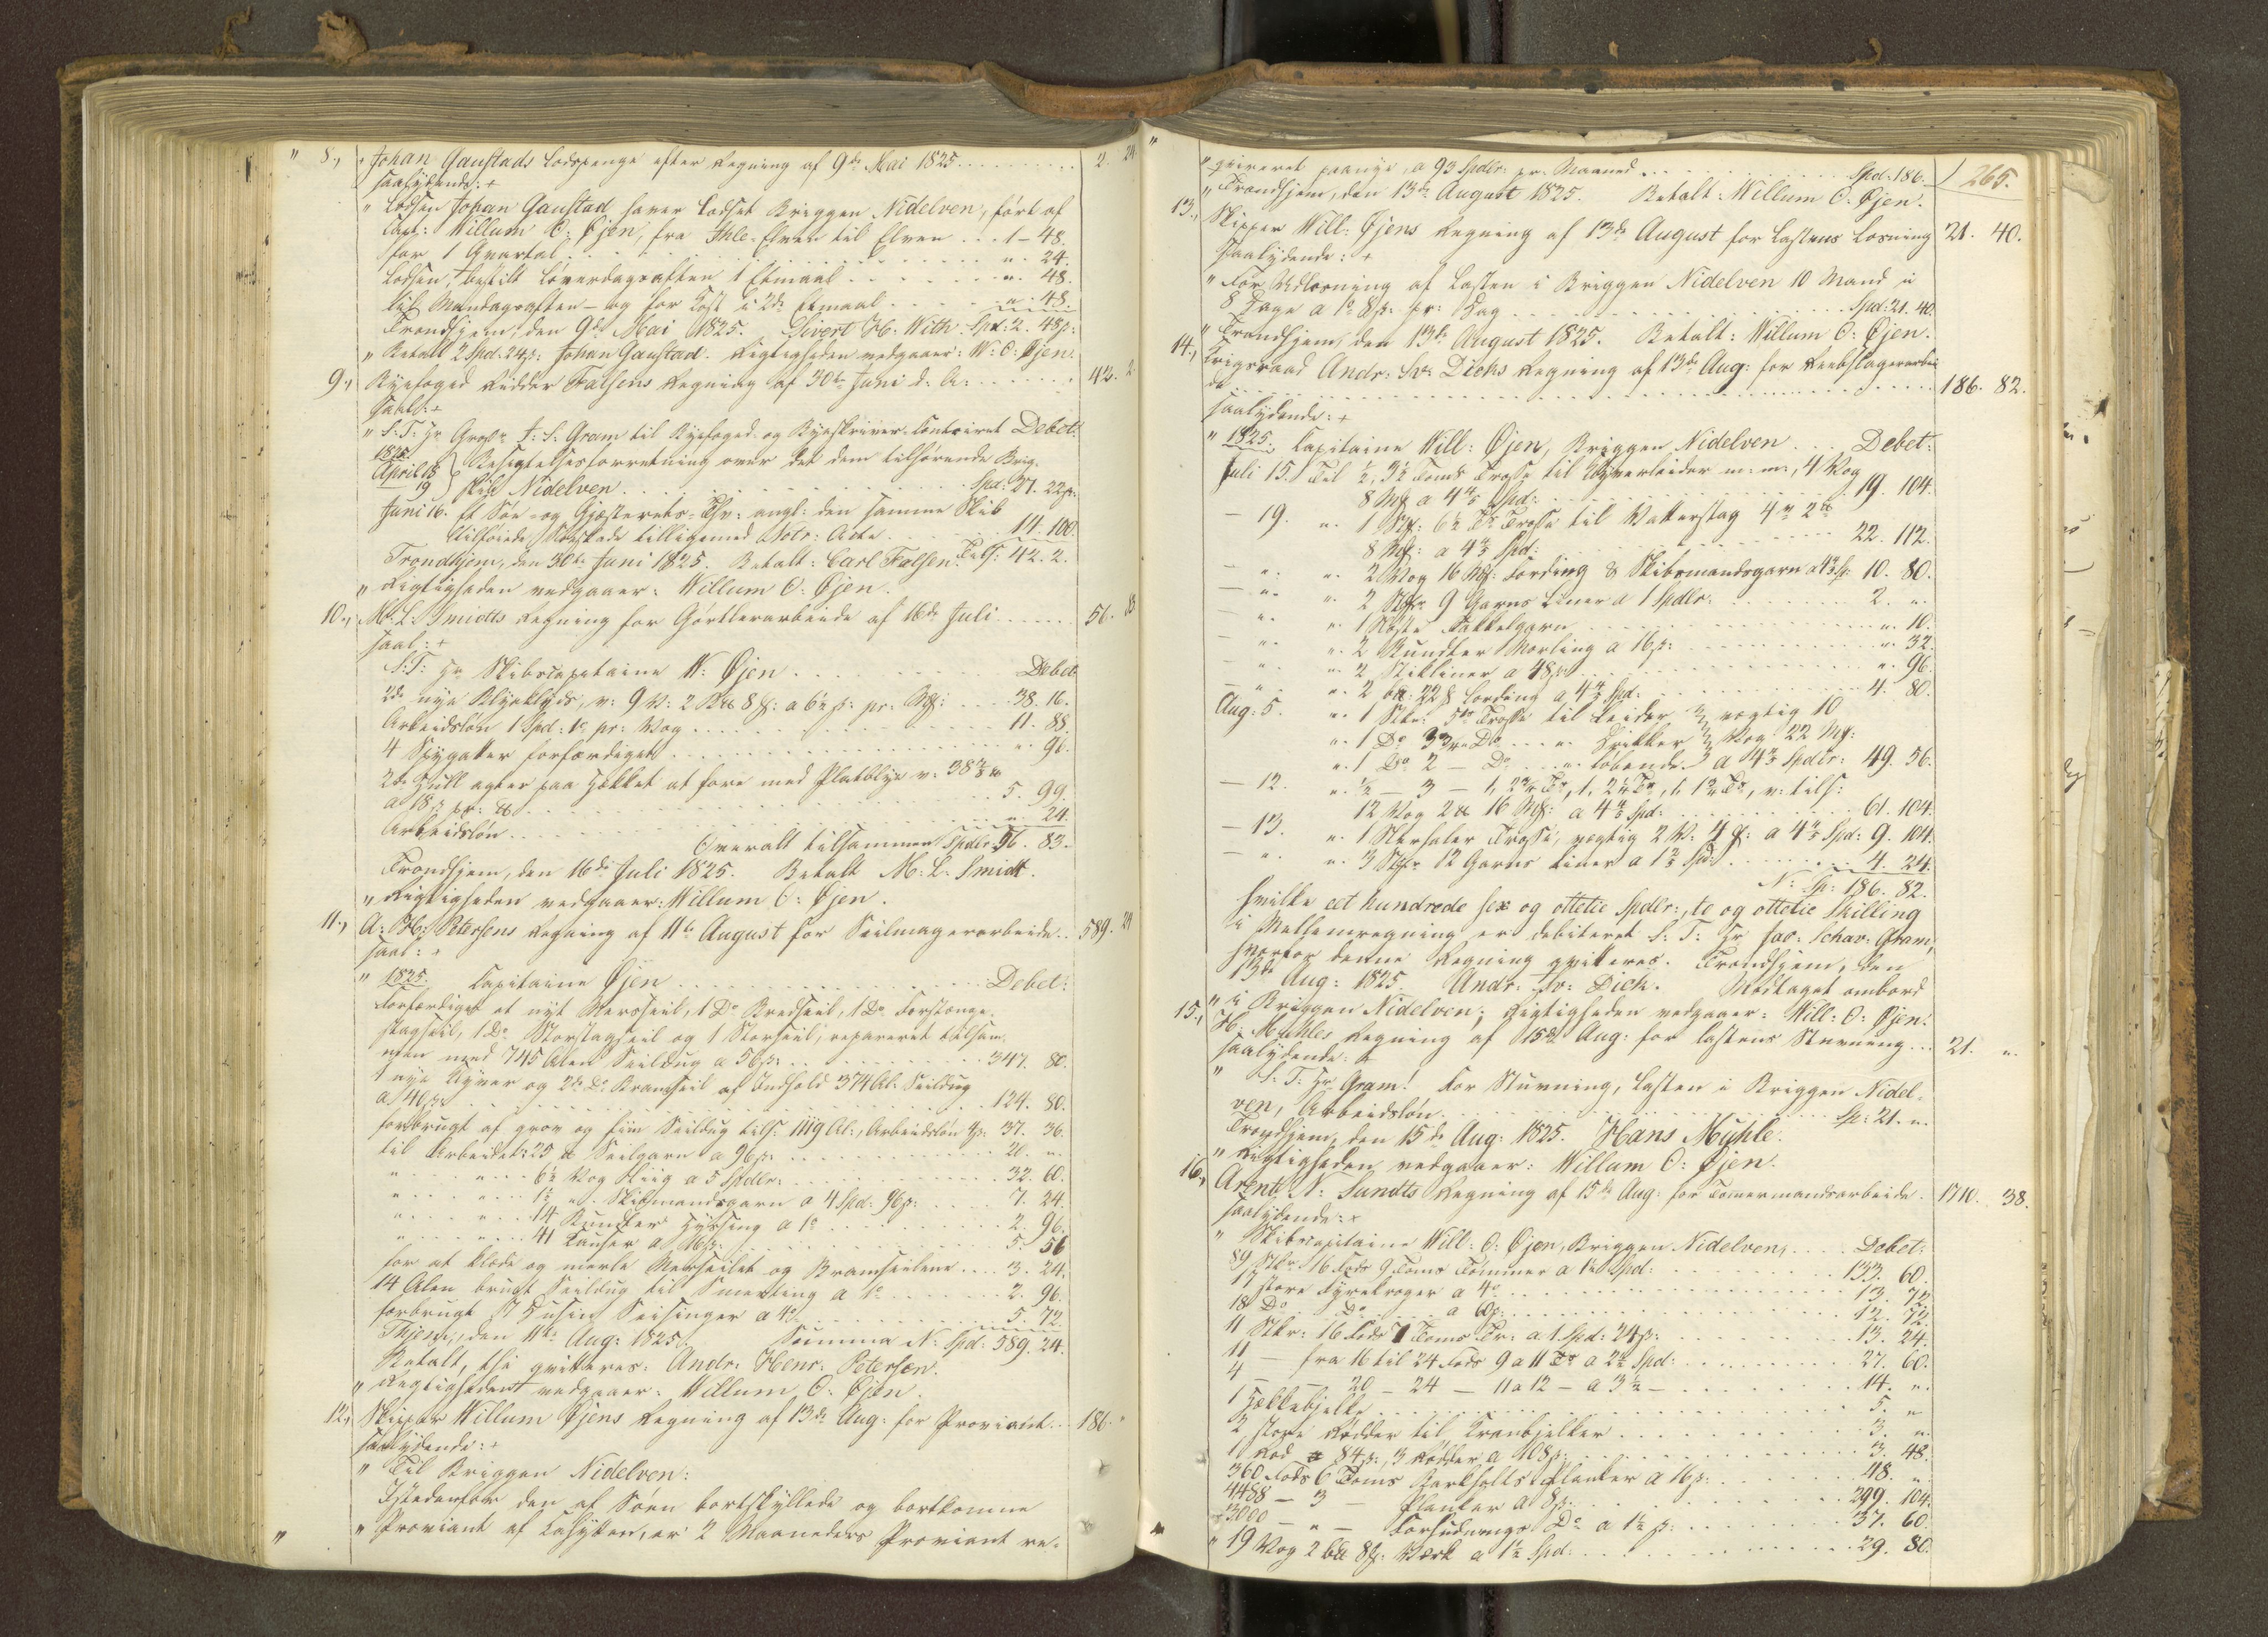 " 8., Johan Gaustads Lodspenge efter Regning af 9de Mai 1825 . . . . 2. 24.
saalydende: +
" Lodsen Johan Gaustad haver lodset Briggen Nidelven, fört af
Capt: Willum O: Öjen, fra Ihle-Elven til Elven . . . 1 - 48.
for 1 Qvartal . . . . ". 24.
Lodsen, bestilt Löverdagsaften 1 Etmaal . . . . ". 48.
til Mandagsaften - og for Kost i 2de Etmaal . . . . ". 48.
Trondhjem, den 9de Mai 1825. Sivert H: With. Spd: 2. 48 s:
" Betalt 2 Spd: 24 s: Johan Gaustad. Rigtigheden vedgaaer: W: O: Öjen.
9., Byefoged Ridder Falsens Regning af 30te Juni d: A: . . . . 42. 2.
saal: +
" S: T: Hr Gross: J: S: Gram til Byefoged- og Byeskriver-Contoiret Debet:
1825.
April 18 } Besigtelsesforretning over det dem tilhörende Brig-
19 } skib Nidelven . . . . Spd: 27. 22 s:
Juni 16. Et Söe- og Gjesterets-Thv: angl: den samme Skib
tilföiede Söeskade tilligemed Notr: Acte . . . . 14. 100.
Trondhjem, den 30te Juni 1825. Betalt: Carl Falsen. Tils: 42. 2.
" Rigtigheden vedgaaer: Willum O: Öjen.
10., M: L: Smidts Regning for Görtlerarbeide af 16de Juli . . . . 56. 83
saal: +
S: T: Hr Skibscapitaine W: Öjen . . . . Debet
2de nye Klyseklyds, v: 9 V: 2 8 a 6½ s: pr: . . . . 38. 16.
Arbeidslön 1 Spd: 1 pr: Vog . . . . 11. 88.
4 Spygatter forfærdiget . . . . ". 96.
2de Hull agter paa Hækket at fore med Platblye v: 38
a 18 s pr: . . . . 5. 99.
Arbeidslön . . . . ". 24.
Overalt tilsammen Spdlr: 56. 83.
Trondhjem, den 16de Juli 1825. Betalt M: L: Smidt.
" Rigtigheden vedgaaer: Willum O: Öjen.
11., A: H: Petersens Regning af 11te August for Seilmagerarbeide . . 589. 24
saal: +
" 1825. Capitaine Öjen . . . . Debet:
Forfærdiget et nyt Mersseil, 1 Do Bredseil, 1 Do Forstænge-
stagseil, 1 Do Storstagseil og 1 Storseil, repareret tilsam-
men med 745 Alen Seildug a 56 s: . . . . 347. 80.
1 nye Klyver og 2de Do Bramseil af Indhold 374 Al: Seildug
a 40 s: . . . . 124. 80.
forbrugt af grov og fiin Seildug tils: 1119 Al:, Arbeidslön 4 s: 37. 36.
til Arbeidet: 25 Seilgarn a 96 s: . . . . 20. ".
" . . " . . 6½ Vog Liig a 5 Spdlr: . . . . 32. 60.
" . . " . . 1½ ". Skibmandsgarn a 4 Spd: 96 s: . . . . 7. 24.
" . . " . . 14 Bundter Hyssing a 1 . . . . 2. 96.
" . . " . . 41 Kauser a 16 s: . . . . 5. 56
for at klæde og merle Merseilet og Bramseilene . . . 3. 24.
14 Alen brugt Seildug til Smerting a 1 . . . . 2. 96.
forbrugt 17 Dusin Seisinger a 4 . . . . 5. 72.
Thjem, den 11te Aug: 1825. Summa N: Spd: 589. 24.
Betalt, thi qvitteres: Andr: Henr: Petersen.
" Rigtigheden vedgaaer: Willum O: Öjen.
12., Skipper Willum Öjens Regning af 13de Aug: for Proviant . . . 186. "
saalydende: +
" Til Briggen Nidelven:
Istedenfor den af Söen bortskyllede og bortkomne
" Proviant af Cahytten, er 2 Maaneders Proviant re-
265.
" qvireret paanye, a 93 Spdlr: pr: Maaned . . . . Spd: 186.
" Trondhjem, den 13de August 1825. Betalt: Willum O: Öjen.
13., Skipper Will: Öjens Regning af 13de August for Lastens Losning 21. 40.
saalydende: +
" For Udlosning af Lasten i Briggen Nidelven 10 Mand i
8 Dage a 1 8 s: pr: Dag . . . . Spd: 21. 40.
" Trondhjem, den 13de August 1825. Betalt: Willum O: Öjen.
14., Krigsraad Andr: Sv: Dicks Regning af 13de Aug: for Reebslagerarbei-
de . . . . 186. 82.
saalydende: +
" 1825. Capitaine Will: Öjen, Briggen Nidelven . . . Debet:
Juli 15. Til ½, 3½ Toms Trosse til Klyverleider m: m:, 4 Vog
8 a 4⅘ Spd: . . . . 19. 104.
- 19. ". 1 Stk: 6½ Ts Trosse til Vatterstag 4 2
8 a 4⅘ Spd: . . . . 22. 112.
- ". ". 2 Vog 16 Lording & Skibsmandsgarn 10. 80.
- ". ". 2 9 Garns Liner a 1 Spdlr: . . . . 2. ".
- ". ". 1 Takkelgarn . . . . ". 10.
- ". ". 2 Bundter Merling a 16 s: . . . . ". 32.
- ". ". 2 Stikliner a 48 s: . . . . ". 96.
- ". ". 2 22 Lording a 4⅘ Spd: . . . . 4. 80.
Aug: 5. ". 1 Stk: 5 Ts Trosse til Leider vegtig 10
". 1 Do 3¾ Do . . ". Vog 22
". 1 Do 2 - Do . . ". löbende a 4⅘ Spdlr: 49. 56.
- 12. ". ½ - 3 - 1, 2¾ Ts, 1, 2½ Ts, 1, 1¾ Ts, v: tils:
12 Vog 2 16 a 4⅘ Spd: . . . . 61. 104.
- 13. ". 1 Trosse, vegtig 2 V: 4 a 4⅘ Spd: 9. 104.
- ". ". 3 12 Garns Liner a 1⅖ Spd: . . . . 4. 24.
N: Sp: 186. 82.
hvilke eet hundrede sex og ottetie Spdlr:, to og ottetie Skilling
i Mellemregning er debiteret S: T: Hr Jac: Schav: Gram,
hvorfor denne Regning qvitteres. Trondhjem, den
13de Aug: 1825. Andr: Sv: Dick. Modtaget ombord
" i Briggen Nidelven; Rigtigheden vedgaaer: Will: O: Öjen.
15., H: Mühles Regning af 15de Aug: for Lastens Stuvning . . . 21. ".
saalydende: +
" S: T: Hr Gram! For Stuvning, Lasten i Briggen Nidel-
ven, Arbeidslön . . . . Sp: 21. ".
Trondhjem, den 15de Aug: 1825. Hans Mühle.
" Rigtigheden vedgaaer: Willum O: Öjen.
16., Arent N: Sundts Regning af 15de Aug: for Tømermandsarbeide . 1710. 38.
saalydende: +
" Skibscapitaine Will: O: Öjen, Briggen Nidelven, . . . . Debet:
89 Stkr 16 Fods 9 Toms Tömmer a 1½ Spd: . . . . 133. 60.
17 store Fyrekroger a 4 . . . . 13. 72.
18 Do Do a 60 s: . . . . 12. 72.
11 Stkr: 16 Fods 1 Toms Tr: a 1 Spd: 24 s: . . . . 13. 24.
11 - fra 16 til 24 Fods 9 a 11 Ts a 2½ Spd: . . . . 27. 60.
4 - - 20 - 24 - 11 a 12 - a 3½ - . . . . 14. ".
1 Hækkebjelke . . . . 5. "
2 store Rödder til Kranbjelker . . . . 3. ".
1 Rod a 84 s:, 3 Rödder a 108 s: . . . . 3. 48.
360 Fods 6 Toms Barkholts Planker a 16 s: . . . . 48. ".
4488 - 3 - Planker a 8 s: . . . . 299. 104.
3000 - " - Forhudnings Do a 1½ s: . . . . 37. 60.
" 19 Vog 2 8 Værk a 1½ Spd: . . . . 29. 80.